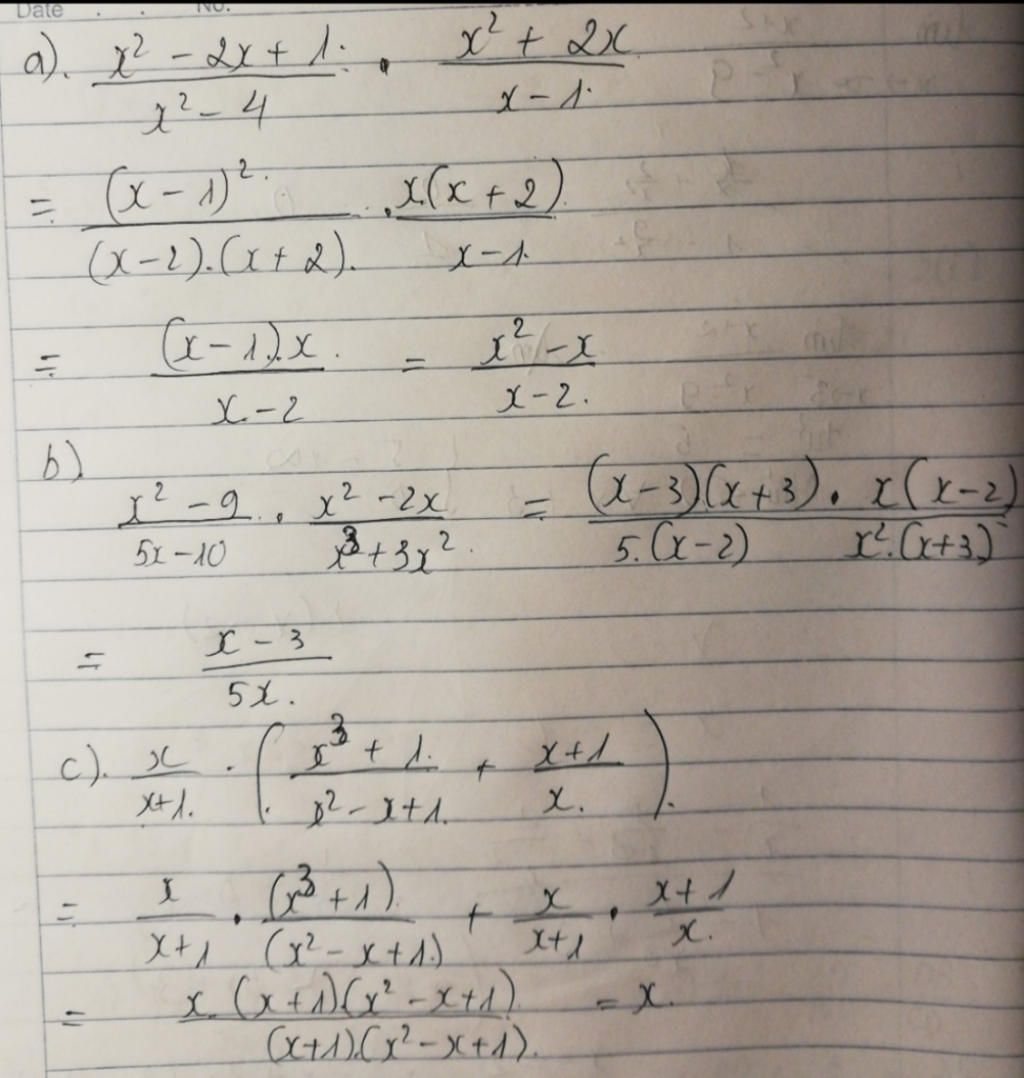 Date . . No.
a). \frac{x^2 - 2x + 1}{x^2 - 4} \cdot \frac{x^2 + 2x}{x - 1}
= \frac{(x - 1)^2}{(x - 2).(x + 2)} . \frac{x.(x + 2)}{x - 1}
= \frac{(x - 1).x}{x - 2} = \frac{x^2 - x}{x - 2}
b).
\frac{x^2 - 9}{5x - 10} . \frac{x^2 - 2x}{x^3 + 3x^2} = \frac{(x - 3)(x + 3)}{5.(x - 2)} . \frac{x(x - 2)}{x^2.(x + 3)}
= \frac{x - 3}{5x}
c). \frac{x}{x + 1} . \left( \frac{x^3 + 1}{x^2 - x + 1} + \frac{x + 1}{x} \right)
= \frac{x}{x + 1} . \frac{(x^3 + 1)}{(x^2 - x + 1)} + \frac{x}{x + 1} . \frac{x + 1}{x}
= \frac{x.(x + 1)(x^2 - x + 1)}{(x + 1).(x^2 - x + 1)} = x.